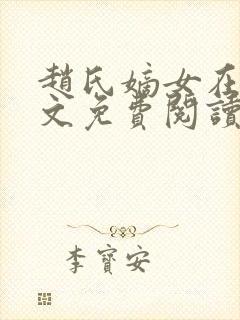 趙氏嫡女在
文免費閱讀
李寶安